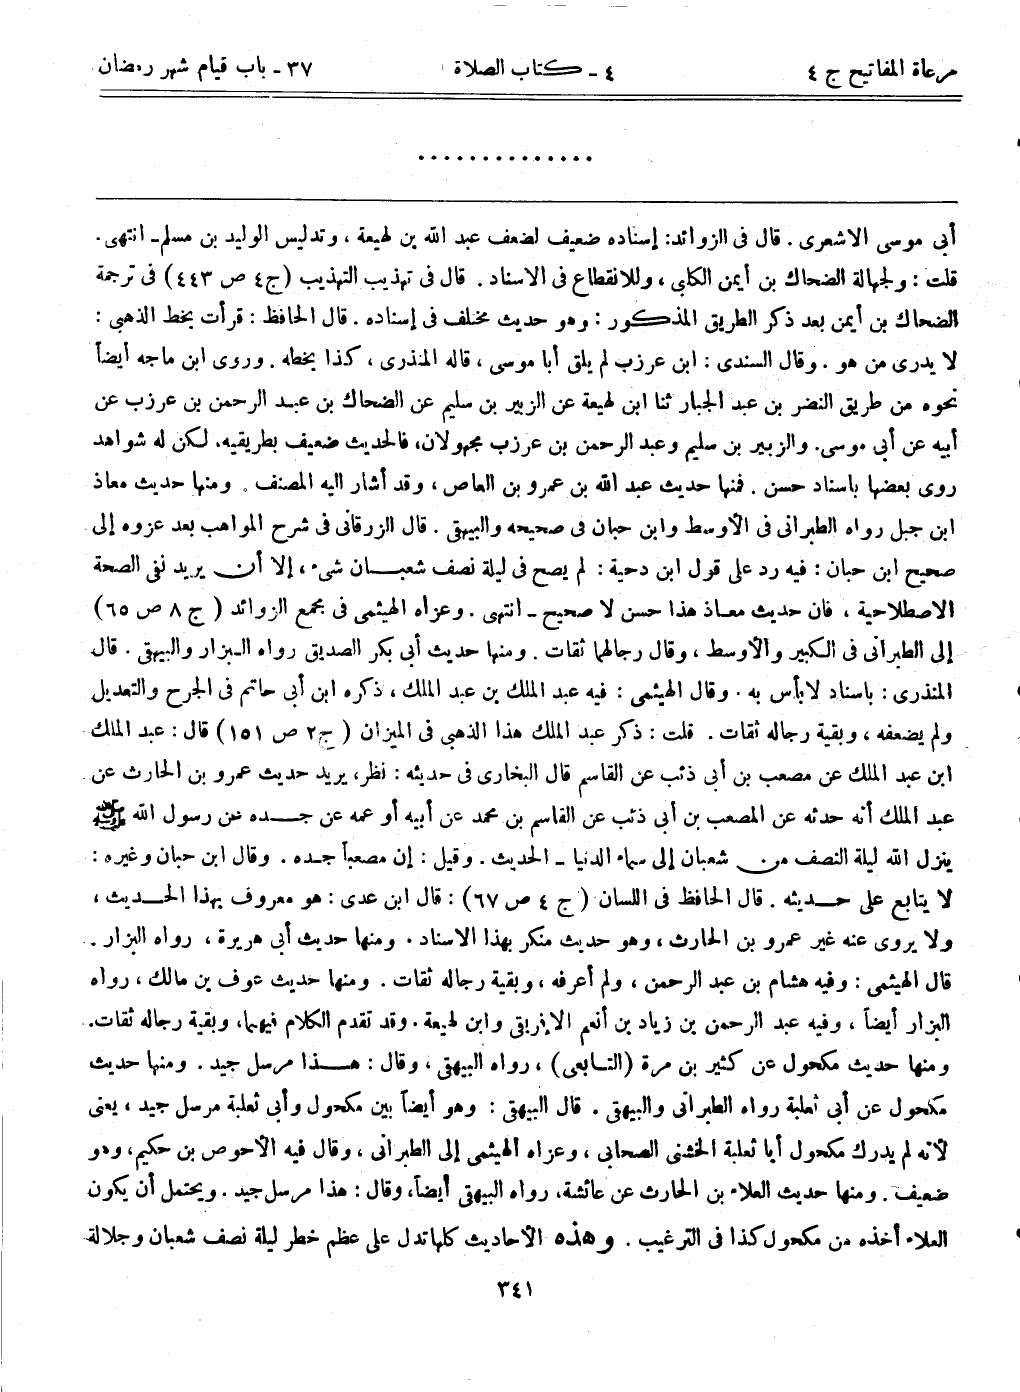 مرعاة المفاتيح ج ٤
٤ ـ كتاب الصلاة
٣٧ ـ باب قيام شهر رمضان
..............
أبي موسى الاشعرى . قال فى الزوائد: إسناده ضعيف لضعف عبد الله بن لهيعة ، وتدليس الوليد بن مسلم ـ انتهى .
قلت : ولجهالة الضحاك بن أيمن الكلبى ، وللانقطاع فى الاسناد . قال فى تهذيب التهذيب (ج٤ ص ٤٤٣) فى ترجمة
الضحاك بن أيمن بعد ذكر الطريق المذكور : وهو حديث مختلف فى إسناده . قال الحافظ : قرأت بخط الذهبى :
لا يدرى من هو . وقال السندى : ابن عرزب لم يلق أبا موسى ، قاله المنذرى ، كذا بخطه . وروى ابن ماجه أيضاً
نحوه من طريق النضر بن عبد الجبار ثنا ابن لهيعة عن الزبير بن سليم عن الضحاك بن عبد الرحمن بن عرزب عن
أبيه عن أبي موسى. والزبير بن سليم وعبد الرحمن بن عرزب مجهولان، فالحديث ضعيف بطريقيه. لكن له شواهد
روى بعضها باسناد حسن . فمنها حديث عبد الله بن عمرو بن العاص ، وقد أشار اليه المصنف . ومنها حديث معاذ
ابن جبل رواه الطبرانى فى الأوسط وابن حبان فى صحيحه والبيهقى . قال الزرقانى فى شرح المواهب بعد عزوه إلى
صحيح ابن حبان : فيه رد على قول ابن دحية : لم يصح فى ليلة نصف شعبان شىء ، إلا أن يريد نفى الصحة
الاصطلاحية ، فان حديث معاذ هذا حسن لا صحيح ـ انتهى . وعزاه الهيثمى فى مجمع الزوائد ( ج ٨ ص ٦٥)
إلى الطبرانى فى الكبير والأوسط ، وقال رجالهما ثقات . ومنها حديث أبي بكر الصديق رواه البزار والبيهقى . قال
المنذرى : باسناد لا بأس به . وقال الهيثمى : فيه عبد الملك بن عبد الملك ، ذكره ابن أبى حاتم فى الجرح والتعديل
ولم يضعفه ، وبقية رجاله ثقات . قلت : ذكر عبد الملك هذا الذهبى فى الميزان ( ج٢ ص ١٥١ ) قال : عبد الملك
ابن عبد الملك عن مصعب بن أبى ذئب عن القاسم قال البخارى فى حديثه : نظر، يريد حديث عمرو بن الحارث عن
عبد الملك أنه حدثه عن المصعب بن أبى ذئب عن القاسم بن محمد عن أبيه أو عمه عن جده عن رسول الله ﷺ
ينزل الله ليلة النصف من شعبان إلى سماء الدنيا ـ الحديث . وقيل : إن مصعباً جده . وقال ابن حبان وغيره :
لا يتابع على حديثه . قال الحافظ فى اللسان ( ج ٤ ص ٦٧) : قال ابن عدى : هو معروف بهذا الحديث ،
ولا يروى عنه غير عمرو بن الحارث ، وهو حديث منكر بهذا الاسناد . ومنها حديث أبى هريرة ، رواه البزار .
قال الهيثمى : وفيه هشام بن عبد الرحمن ، ولم أعرفه ، وبقية رجاله ثقات . ومنها حديث عوف بن مالك ، رواه
البزار أيضاً ، وفيه عبد الرحمن بن زياد بن أنعم الإفريقى وابن لهيعة . وقد تقدم الكلام فيهما، وبقية رجاله ثقات.
ومنها حديث مكحول عن كثير بن مرة (التابعى) ، رواه البيهقى ، وقال : هذا مرسل جيد . ومنها حديث
مكحول عن أبى ثعلبة رواه الطبرانى والبيهقى . قال البيهقى : وهو أيضاً بين مكحول وأبى ثعلبة مرسل جيد ، يعنى
لأنه لم يدرك مكحول أبا ثعلبة الخشنى الصحابى ، وعزاه الهيثمى إلى الطبرانى ، وقال فيه الأحوص بن حكيم، وهو
ضعيف . ومنها حديث العلاء بن الحارث عن عائشة، رواه البيهقى أيضاً، وقال : هذا مرسل جيد . ويحتمل أن يكون
العلاء أخذه من مكحول كذا فى الترغيب . وهذه الأحاديث كلها تدل على عظم خطر ليلة نصف شعبان وجلالة
٣٤١